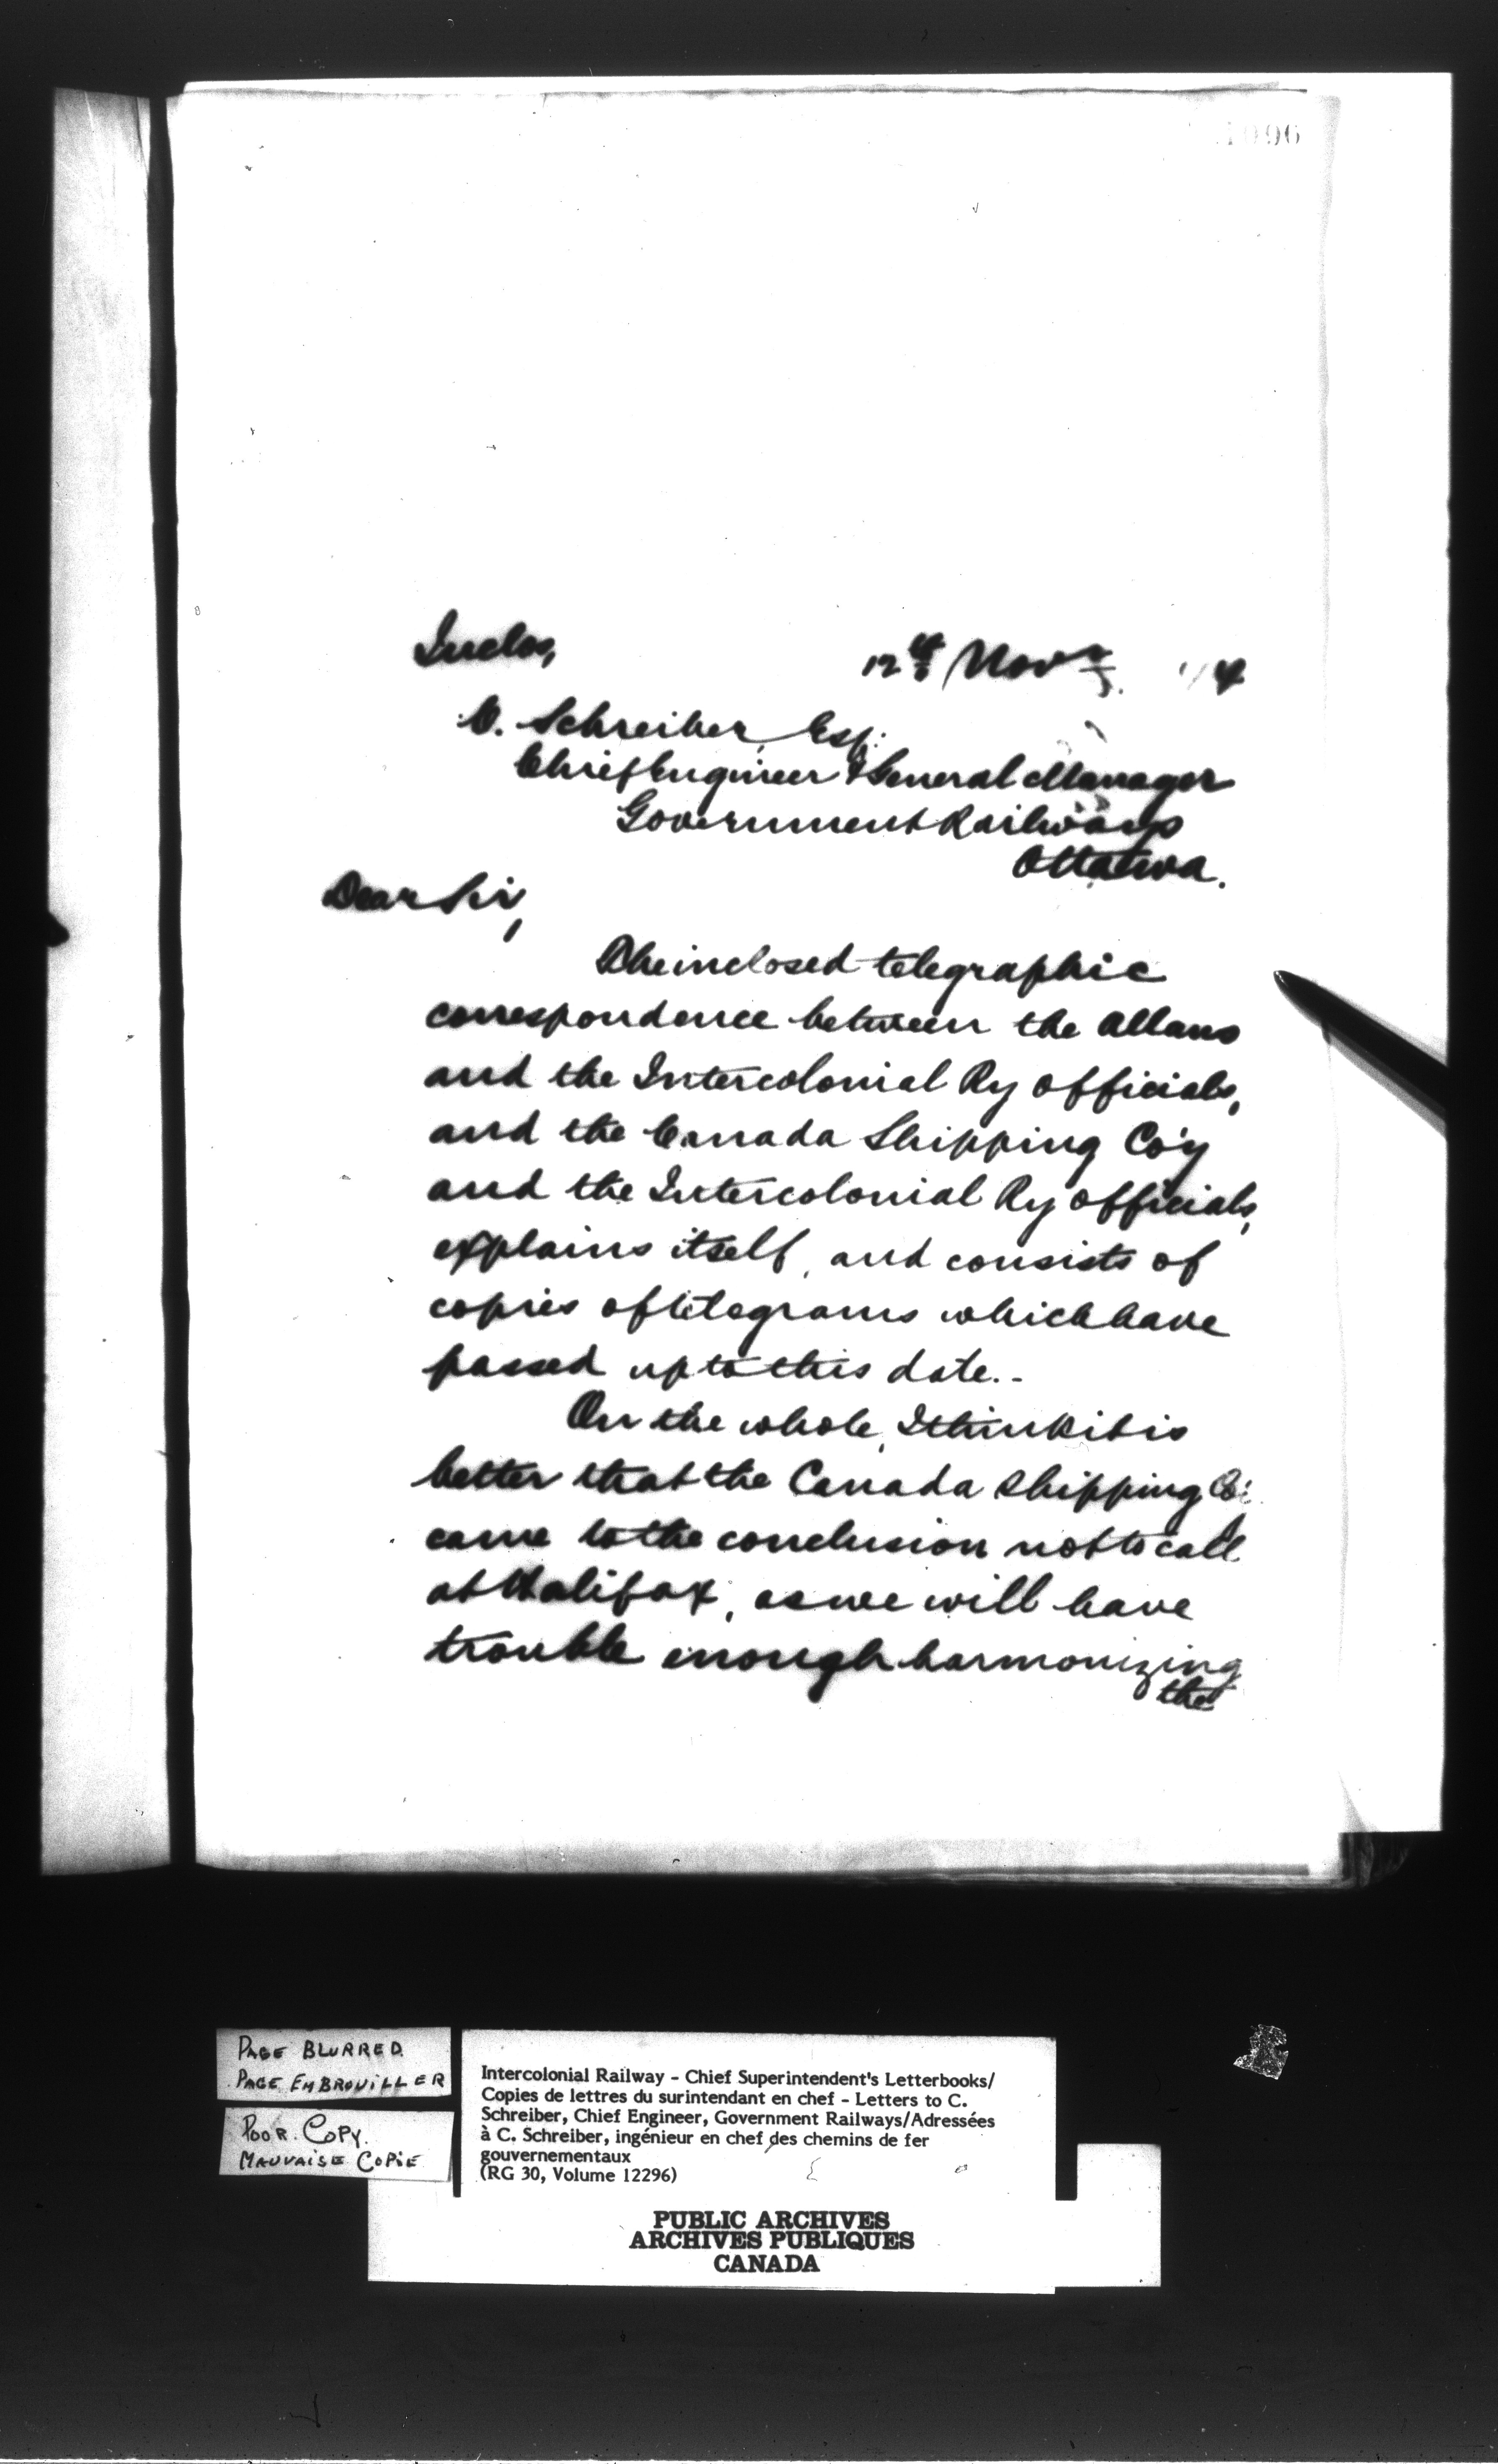 Inclos,
12th Novr. 4
C. Schreiber, Esq.
Chief Engineer & General Manager
Government Railways
Ottawa.
Dear Sir,
The inclosed telegraphic
correspondence between the Allans
and the Intercolonial Ry officials,
and the Canada Shipping Co'y
and the Intercolonial Ry officials,
explains itself, and consists of
copies of telegrams which have
passed up to this date.-
On the whole, I think it is
better that the Canada Shipping Co:
came to the conclusion not to call
at Halifax, as we will have
trouble enough harmonizing
the
PAGE BLURRED
PAGE EMBROUILLER
POOR COPY.
MAUVAISE COPIE
Intercolonial Railway - Chief Superintendent's Letterbooks/
Copies de lettres du surintendant en chef - Letters to C.
Schreiber, Chief Engineer, Government Railways/Adressées
à C. Schreiber, ingénieur en chef des chemins de fer
gouvernementaux
(RG 30, Volume 12296)
PUBLIC ARCHIVES
ARCHIVES PUBLIQUES
CANADA